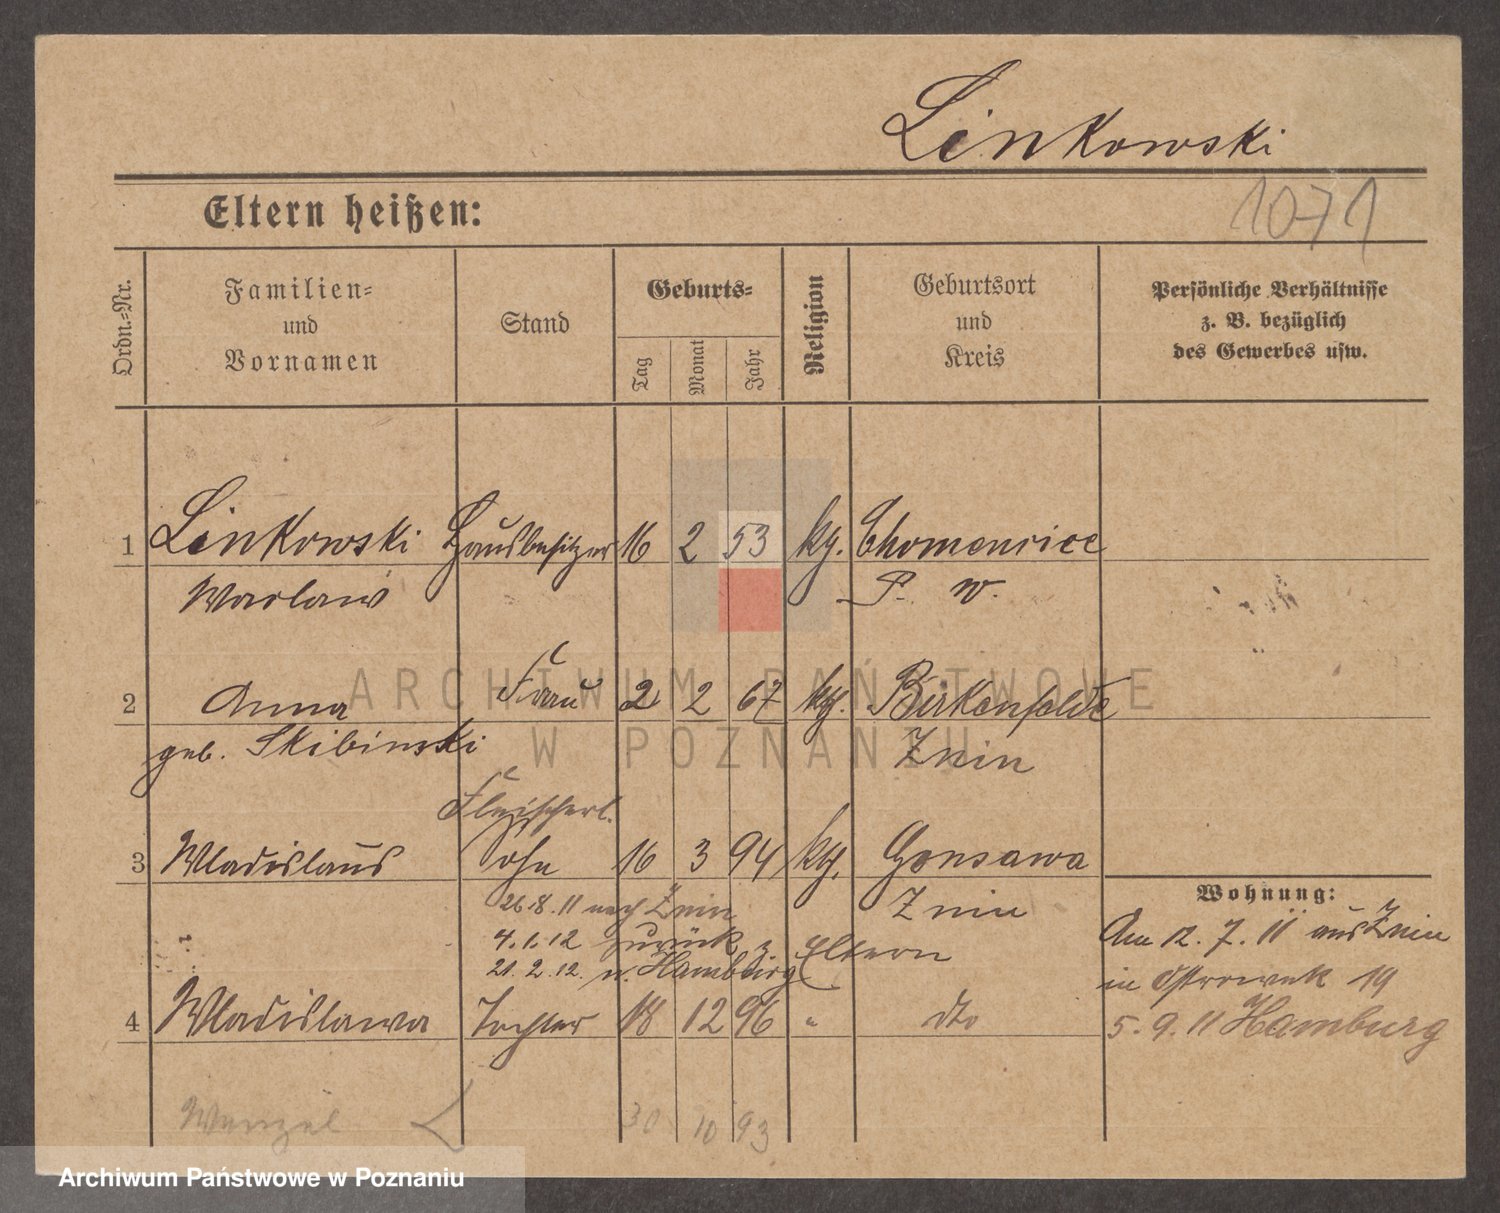 Linkowski
Eltern heißen:
1071
Ordn.-Nr.
Familien-
und
Vornamen
Stand
Geburts-
Tag
Monat
Jahr
Religion
Geburtsort
und
Kreis
Persönliche Verhältnisse
z. B. bezüglich
des Gewerbes usw.
1 Linkowski Hausbesitzer 16 2 53 kg. Chomencice
Waclaw P. W.
2 Anna Frau 2 2 67 kg. Birkenfelde
geb. Skibinski Znin
Fleischerl.
3 Wladislaus Sohn 16 3 94 kg. Gonsawa
Znin
26.8.11 nach Znin
4.1.12 zurück z. Eltern
21.2.12. n. Hamburg
Wohnung:
Am 12.7.11 aus Znin
in Ostrowek 19
5.9.11 Hamburg
4 Wladislawa Tochter 18 12 96 " dto
Wenzel 30 10 93
ARCHIWUM PAŃSTWOWE
W POZNANIU
Archiwum Państwowe w Poznaniu